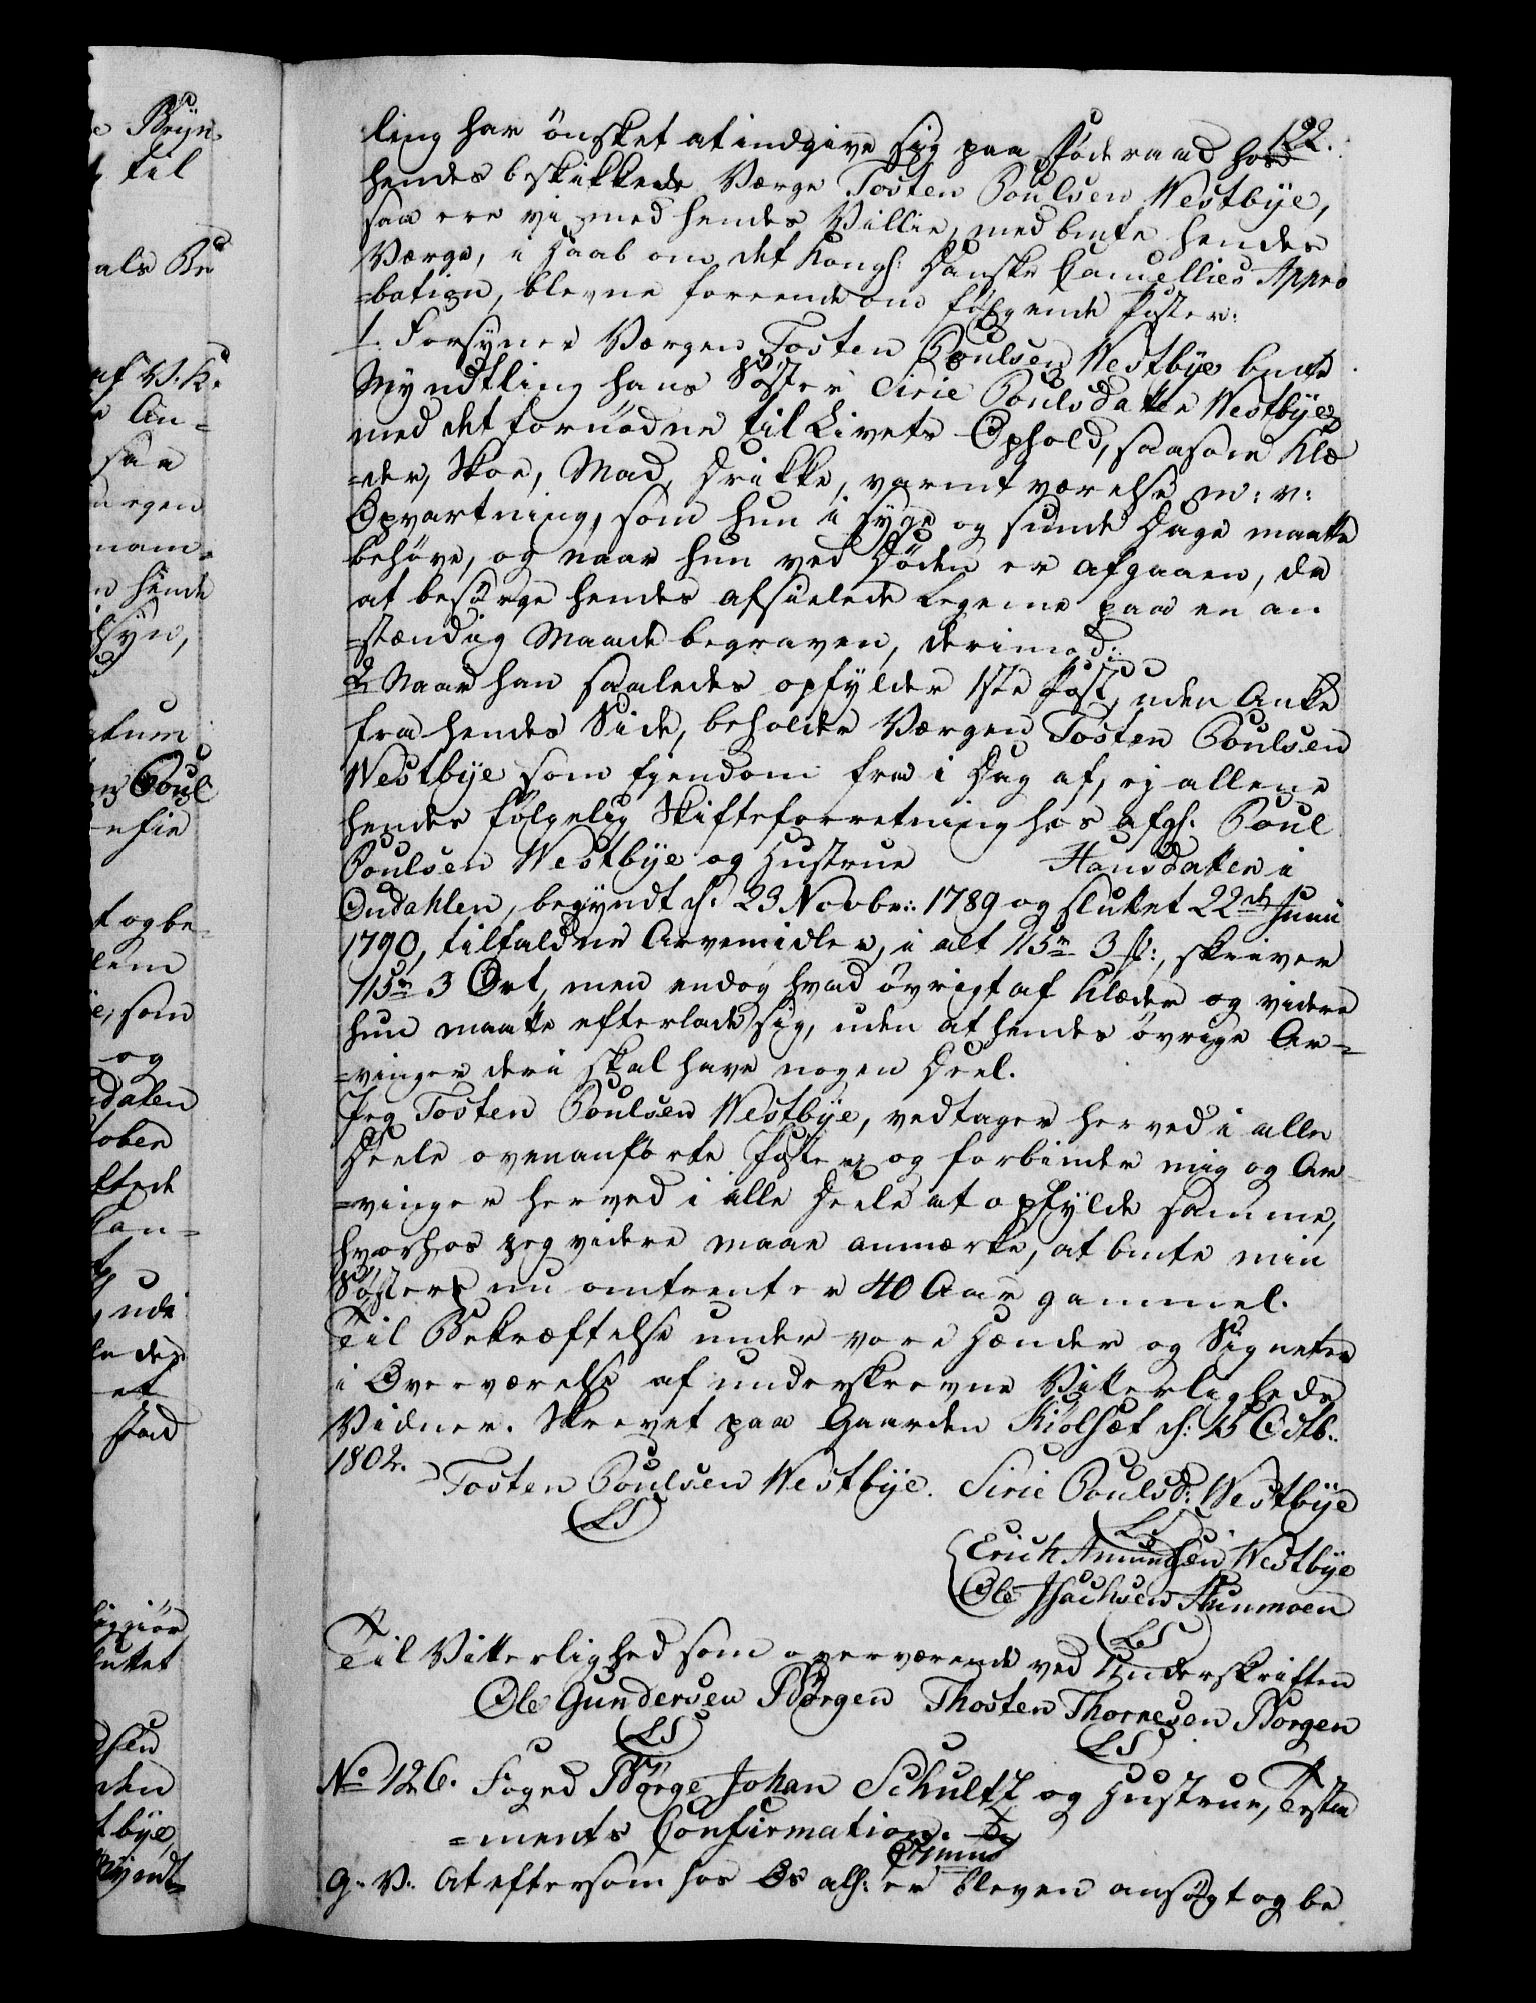 122.
ling har ønsket at indgive sig paa Føderaad hos
hendes beskikkede Værge Tosten Poulsen Westbye,
saa ere vi med hendes Villie, med bmte hendes
Værge, i Haab om det Kongl: Danske Cancellies Appro
=bation, blevne foreenede om følgende Poster:
1. Forsyner Værgen Tosten Poulsen Westbye bmte
Myndtling hans Søster Sirie Poulsdatter Westbye
med det fornødne til Livets Ophold, saasom Klæ
=der, Skoe, Mad, Drikke, varmt værelse m: v:
Opvartning, som hun i syge og sunde Dage maatte
behøve, og naar hun ved Døden er afgaaen, da
at besørge hendes afsielede Legeme paa en an
=stændig Maade begraven, derimod:
2 Naar han saaledes opfylder 1ste Post, uden Anke
fra hendes Side, beholder Værgen Tosten Poulsen
Westbye som Ejendom fra i Dag af, ej allene
hendes følgelig Skifteforretning hos afg: Poul
Poulsen Westbye og Hustrue Hansdatter i
Ondahlen, begyndt d: 23 Novbr: 1789 og sluttet 22de Junii
1790, tilfaldne Arvemidler, i alt 115 rd 3 ß:, skriver
115 rd 3 Ort, men endog hvad øvrigt af Klæder og videre
hun maatte efterlade sig, uden at hendes øvrige Ar=
=vinger deri skal have nogen Deel.
Jeg Tosten Poulsen Westbye, vedtager herved i alle
Deele ovenanførte Poster og forbinder mig og Ar
=vinger herved i alle Deele at opfylde samme,
hvorhos jeg videre maae anmærke, at bmte min
Søster nu omtrent er 40 Aar gammel.
Til Bekræftelse under vore Hænder og Signeter
i Overværelse af underskrevne Vitterligheds
Vidner. Skrevet paa Gaarden Kiølsæt d: 15 Octb:
1802.
Tosten Poulsen Westbye. Sirie Poulsd: Westbye
(LS) (LS)
Erich Amundsen Westbye
Ole Isachsen Thunmoen
(LS)
Til Vitterlighed som overværende ved Underskriften
Ole Gundersen Borgen Thosten Thoresen Borgen
(LS) (LS)
No 126. Foged Børge Johan Schultz og Hustrue, Testa
=ments Confirmation.
G. V. At eftersom hos Os all: er bleven ansøgt og be